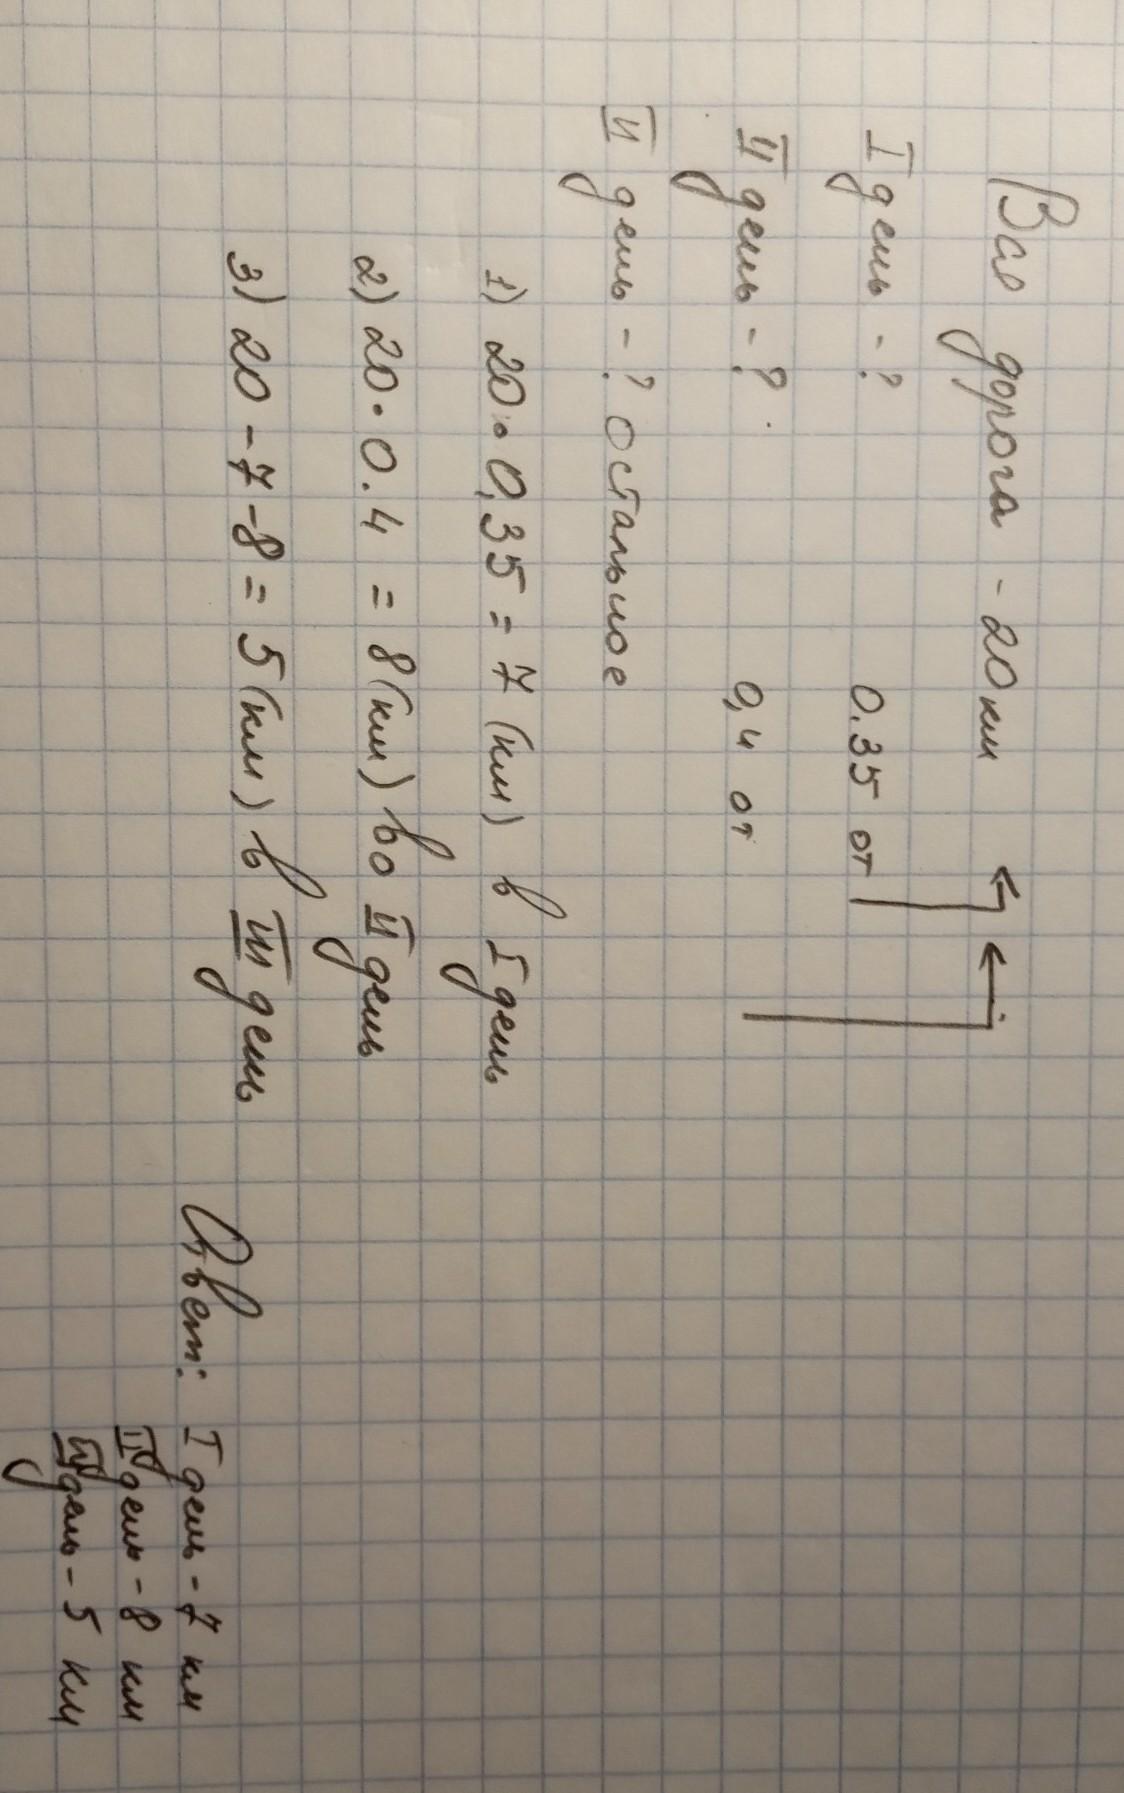 Вся дорога - 20 км
I день - ? 0.35 от
II день - ? 0,4 от
III день - ? остальное
1) 20 · 0,35 = 7 (км) в I день
2) 20 · 0.4 = 8 (км) во II день
3) 20 - 7 - 8 = 5 (км) в III день
Ответ: I день - 7 км
II день - 8 км
III день - 5 км